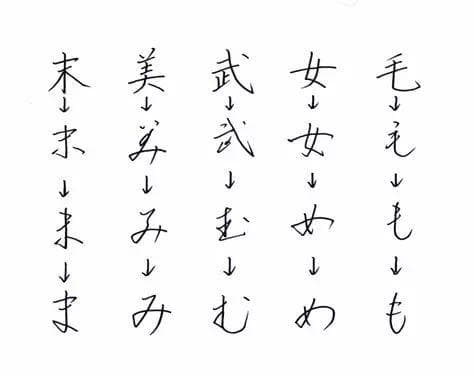 末 美 武 女 毛
↓ ↓ ↓ ↓ ↓
末 美 武 女 毛
↓ ↓ ↓ ↓ ↓
ま み む め も
↓ ↓ ↓ ↓ ↓
ま み む め も